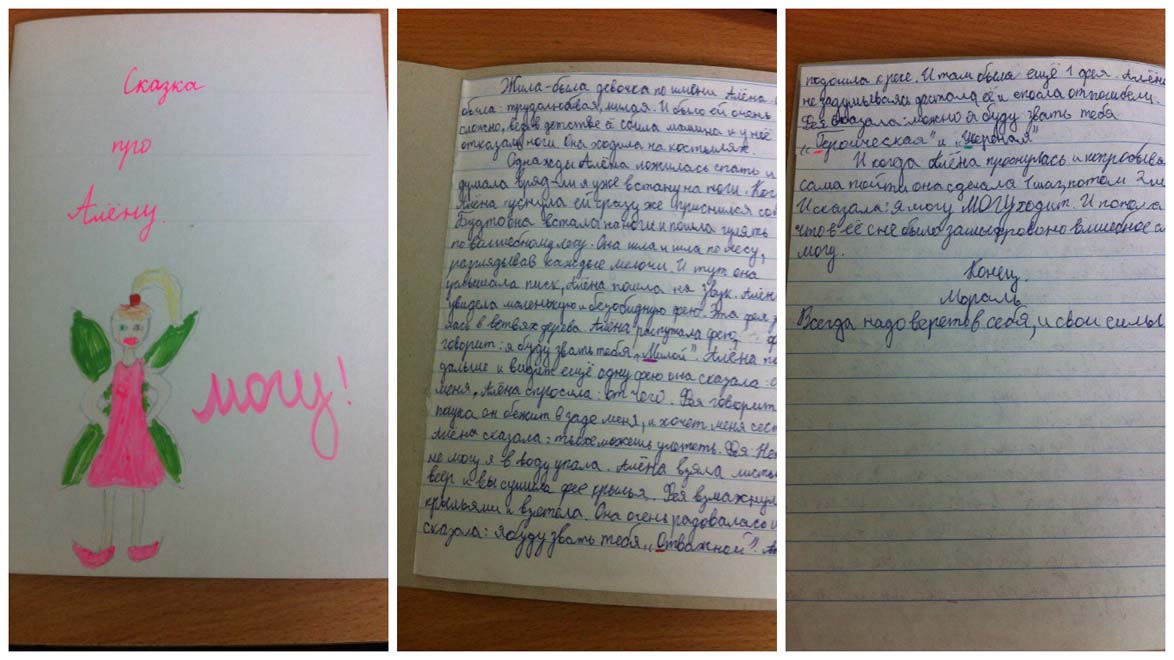 Сказка
про
Алёну.
могу!
Жила-была девочка по имени Алёна.
была: трудолюбивая, милая. И было ей очень
сложно, ведь в детстве её сбила машина и у неё
отказали ноги. Она ходила на костылях.
Однажды Алёна ложилась спать и
думала вряд-ли я уже встану на ноги. Ког
Алёна уснула ей сразу же приснился сон
Будто она встала на ноги и пошла гулять
по волшебному лесу. Она шла и шла по лесу,
разглядывав каждые мелочи. И тут она
услышала писк, Алёна пошла на звук. Алён
увидела маленькую и безобидную фею. Эта фея
лась в ветвях дерева. Алёна распутала фею,
говорит: я буду звать тебя „Милой". Алёна по
дальше и видит ещё одну фею она сказала:
меня, Алёна спросила: от чего. Фея говорит
паука он бежит в заде меня, и хочет меня сест
Алёна сказала: ты же можешь улететь. Фея: Не
не могу я в воду упала. Алёна взяла листь
веер и высушила фее крылья. Фея взмахнул
крыльями и взлетела. Она очень радовалась и
сказала: я буду звать тебя „Отважной". Ал
подошла к реке. И там была ещё 1 фея. Алён
не задумываясь достала её и спасла от погибели.
Фея сказала: можно я буду звать тебя
„Героическая" и
И когда Алёна проснулась и попробыва
сама пойти она сделала 1 шаг, потом 2 ш
И сказала: я могу МОГУ ходит. И поняла
что в её сне было зашифровано влшебное сл
могу.
Конец.
Мораль
Всегда надо верет в себя, и свои силы